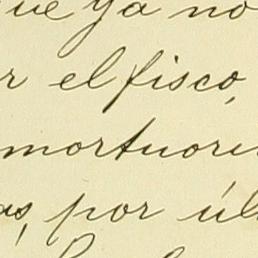 ue ya no
r el fisco,
mortuori
as, por úl